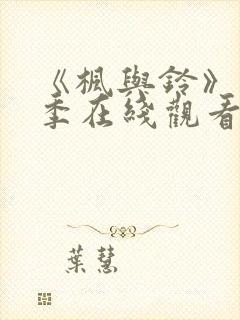 《楓與鈴》
季在綫觀看
葉慧